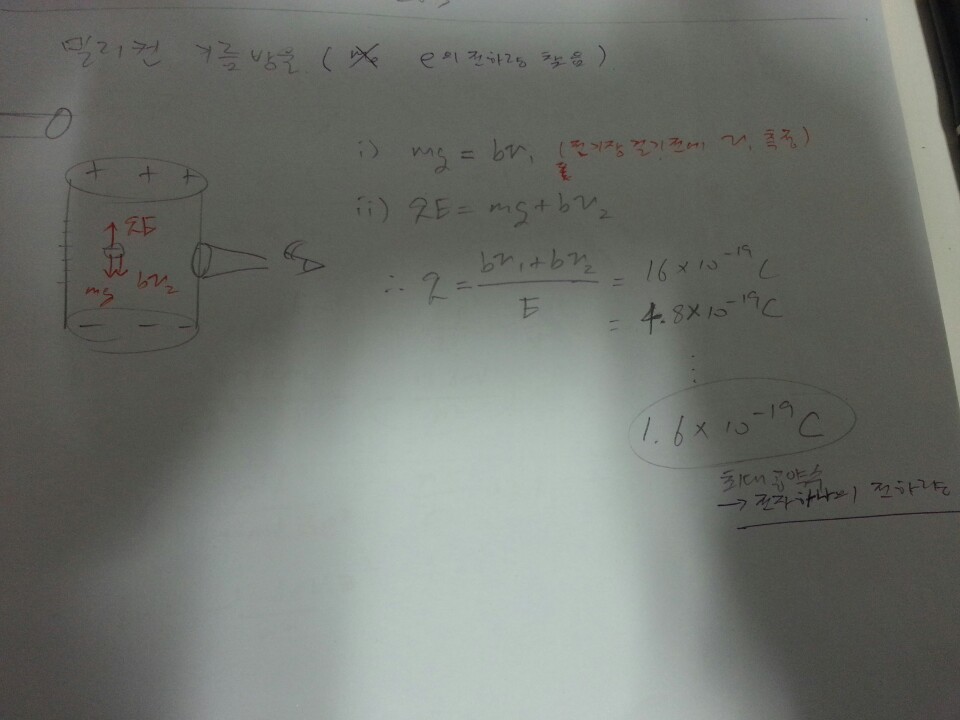 밀리컨 기름방울 ( e의 전하량 찾음 )
i) mg = bv₁ (전기장 걸기 전에 v₁ 측정)
ii) qE = mg + bv₂
∴ q = (bv₁ + bv₂) / E = 16 × 10⁻¹⁹ C
= 4.8 × 10⁻¹⁹ C
⋮
1.6 × 10⁻¹⁹ C
최대공약수
→ 전자 하나의 전하량
+ + +
qE
mg bv₂
− − −